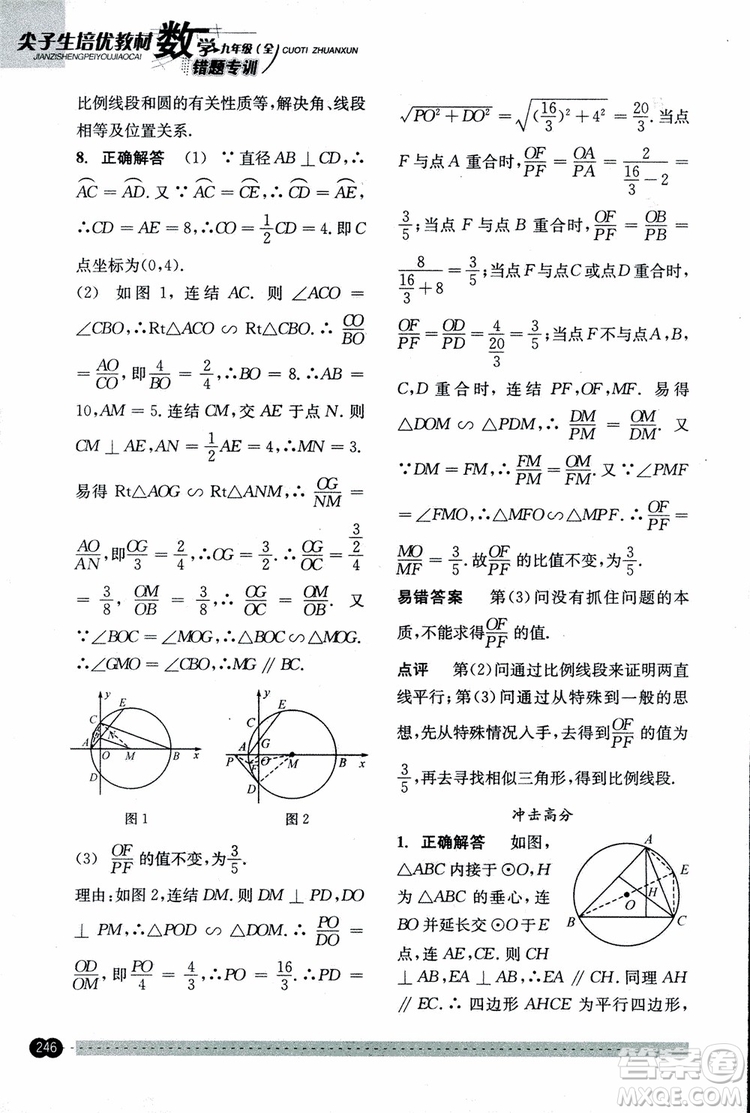 尖子生培优教材 数学 九年级(全) CUOTI ZHUANXUN
JIANZISHENGPEIYOUJIAOCAI 错题专训
比例线段和圆的有关性质等,解决角、线段
相等及位置关系.
8. 正确解答 (1) ∵直径AB⊥CD,∴
⌒AC=⌒AD. 又∵⌒AC=⌒CE,∴⌒CD=⌒AE,
∴CD=AE=8,∴CO=1/2CD=4. 即C
点坐标为(0,4).
(2) 如图1,连结AC. 则∠ACO=
∠CBO,∴Rt△ACO∽Rt△CBO. ∴CO/BO
=AO/CO,即4/BO=2/4,∴BO=8. ∴AB=
10,AM=5. 连结CM,交AE于点N. 则
CM⊥AE,AN=1/2AE=4,∴MN=3.
易得Rt△AOG∽Rt△ANM,∴OG/NM=
AO/AN,即OG/3=2/4,∴OG=3/2. ∴OG/OC=(3/2)/4
=3/8,OM/OB=3/8,∴OG/OC=OM/OB. 又
∵∠BOC=∠MOG,∴△BOC∽△MOG.
∴∠GMO=∠CBO,∴GM∥BC.
y E C N A O M B x D
图1
y E C G P A F O M B x D
图2
(3) OF/PF的值不变,为3/5.
理由:如图2,连结DM. 则DM⊥PD,DO
⊥PM,∴△POD∽△DOM. ∴PO/DO=
OD/OM,即PO/4=4/3,∴PO=16/3. ∴PD=
√(PO²+DO²)=√((16/3)²+4²)=20/3. 当点
F与点A重合时,OF/PF=OA/PA=2/(16/3-2)=
3/5;当点F与点B重合时,OF/PF=OB/PB=
8/(16/3+8)=3/5;当点F与点C或点D重合时,
OF/PF=OD/PD=4/(20/3)=3/5;当点F不与点A,B,
C,D重合时,连结PF,OF,MF. 易得
△DOM∽△PDM,∴DM/PM=OM/DM. 又
∵DM=FM,∴FM/PM=OM/FM. 又∵∠PMF
=∠FMO,∴△MFO∽△MPF. ∴OF/PF=
MO/MF=3/5. 故OF/PF的比值不变,为3/5.
易错答案 第(3)问没有抓住问题的本
质,不能求得OF/PF的值.
点评 第(2)问通过比例线段来证明两直
线平行;第(3)问通过从特殊到一般的思
想,先从特殊情况入手,去得到OF/PF的值为
3/5,再去寻找相似三角形,得到比例线段.
冲击高分
1. 正确解答 如图,
△ABC内接于⊙O,H
为△ABC的垂心,连
BO并延长交⊙O于E
点,连AE、CE. 则CH
⊥AB,EA⊥AB,∴EA∥CH. 同理AH
∥EC. ∴四边形AHCE为平行四边形,
A E H O B C
246
答案圈
MXQE.COM